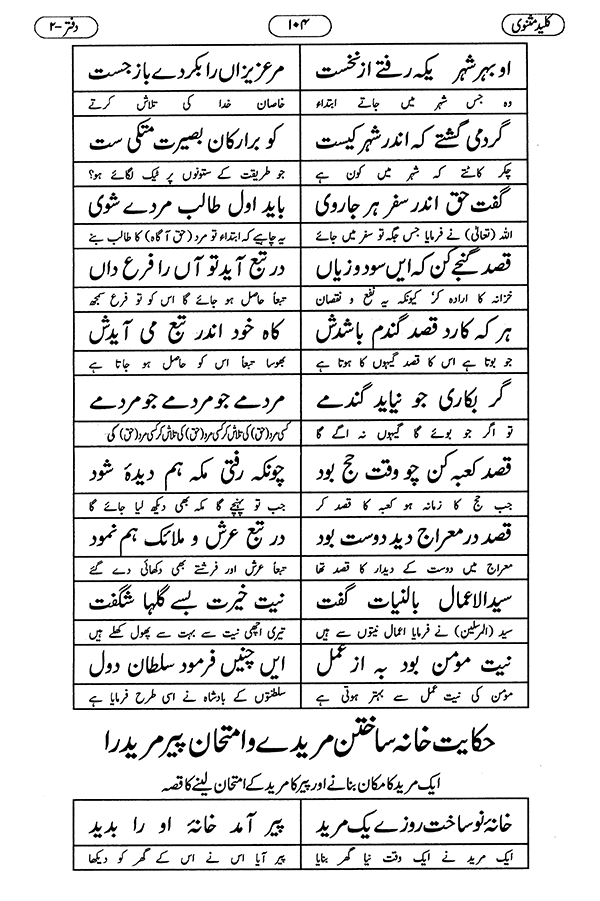 کلید مثنوی ۱۰۴ دفتر-۲
او بہر شہر یکہ رفتے از نخست مر عزیزاں را بکردے باز جست
وہ جس شہر میں جاتے ابتداء خاصان خدا کی تلاش کرتے
گرد می گشتے کہ اندر شہر کیست کو بر ارکان بصیرت متکی ست
چکر کاٹتے کہ شہر میں کون ہے جو طریقت کے ستونوں پر ٹیک لگائے ہو؟
گفت حق اندر سفر ہر جا روی باید اول طالب مردے شوی
اللہ (تعالیٰ) نے فرمایا جس جگہ تو سفر میں جائے یہ چاہیے کہ ابتداء تو مرد (حق آگاہ) کا طالب بنے
قصد گنجے کن کہ ایں سود و زیاں در تبع آید تو آں را فرع داں
خزانہ کا ارادہ کر کیونکہ یہ نفع و نقصان تبعاً حاصل ہو جائے گا اس کو تو فرع سمجھ
ہر کہ کارد قصد گندم باشدش کاہ خود اندر تبع می آیدش
جو بوتا ہے اس کا قصد گیہوں کا ہوتا ہے بھوسا تبعاً اس کو حاصل ہو جاتا ہے
گر بکاری جو نیاید گندمے مردمے جو مردمے جو مردمے
تو اگر جو بوئے گا گیہوں نہ اگے گا کسی مرد (حق) کی تلاش کر کسی مرد (حق) کی تلاش کر کسی مرد (حق) کی
قصد کعبہ کن چو وقت حج بود چونکہ رفتی مکہ ہم دیدہ شود
جب حج کا زمانہ ہو کعبہ کا قصد کر جب تو پہنچے گا مکہ بھی دیکھ لیا جائے گا
قصد در معراج دید دوست بود در تبع عرش و ملائک ہم نمود
معراج میں دوست کے دیدار کا قصد تھا تبعاً عرش اور فرشتے بھی دکھائی دے گئے
سید الاعمال بالنیات گفت نیت خیرت بسے گلہا شگفت
سید (المرسلین) نے فرمایا اعمال نیتوں سے ہیں تیری اچھی نیت سے بہت سے پھول کھلے ہیں
نیت مؤمن بود بہ از عمل ایں چنیں فرمود سلطان دول
مؤمن کی نیت عمل سے بہتر ہوتی ہے سلطنتوں کے بادشاہ نے اسی طرح فرمایا ہے
حکایت خانہ ساختن مریدے و امتحان پیر مرید را
ایک مرید کا مکان بنانے اور پیر کا مرید کے امتحان لینے کا قصہ
خانۂ نو ساخت روزے یک مرید پیر آمد خانۂ او را بدید
ایک مرید نے ایک وقت نیا گھر بنایا پیر آیا اس نے اس کے گھر کو دیکھا